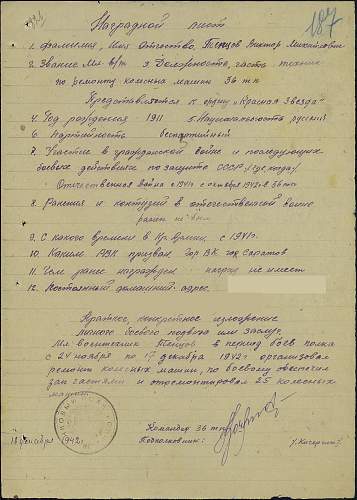 187
Наградной лист
1. Фамилия, Имя Отчество. Тенцов Виктор Михайлович
2. Звание Мл. в/т 3 Должность, часть техник
по ремонту колесн. машин 36 тп
Представляется к ордену "Красная Звезда"
4. Год рождения 1911 5. Национальность русский
6. Партийность беспартийный
7. Участие в гражданской войне и последующих
боевых действиях по защите СССР (где когда)
Отечественная война с 1941 г. с октября 1942 г. в 36 тп
8. Ранения и контузии в отечественной войне
ранен не был
9. С какого времени в Кр. Армии, с 1941 г.
10. Каким РВК призван Гор ВК гор Саратов
11. Чем ранее награжден наград не имеет
12. Постоянный домашний адрес
Краткое, конкретное изложение
личного боевого подвига или заслуг.
Мл. воентехник Тенцов в период боев полка
с 24 ноября по 17 декабря 1942 г. организовал
ремонт колесных машин, по боевому обеспечил
зап частями и отремонтировал 25 колесных
машин.
Командир 36 тп
18 декабря 1942 г. Подполковник: